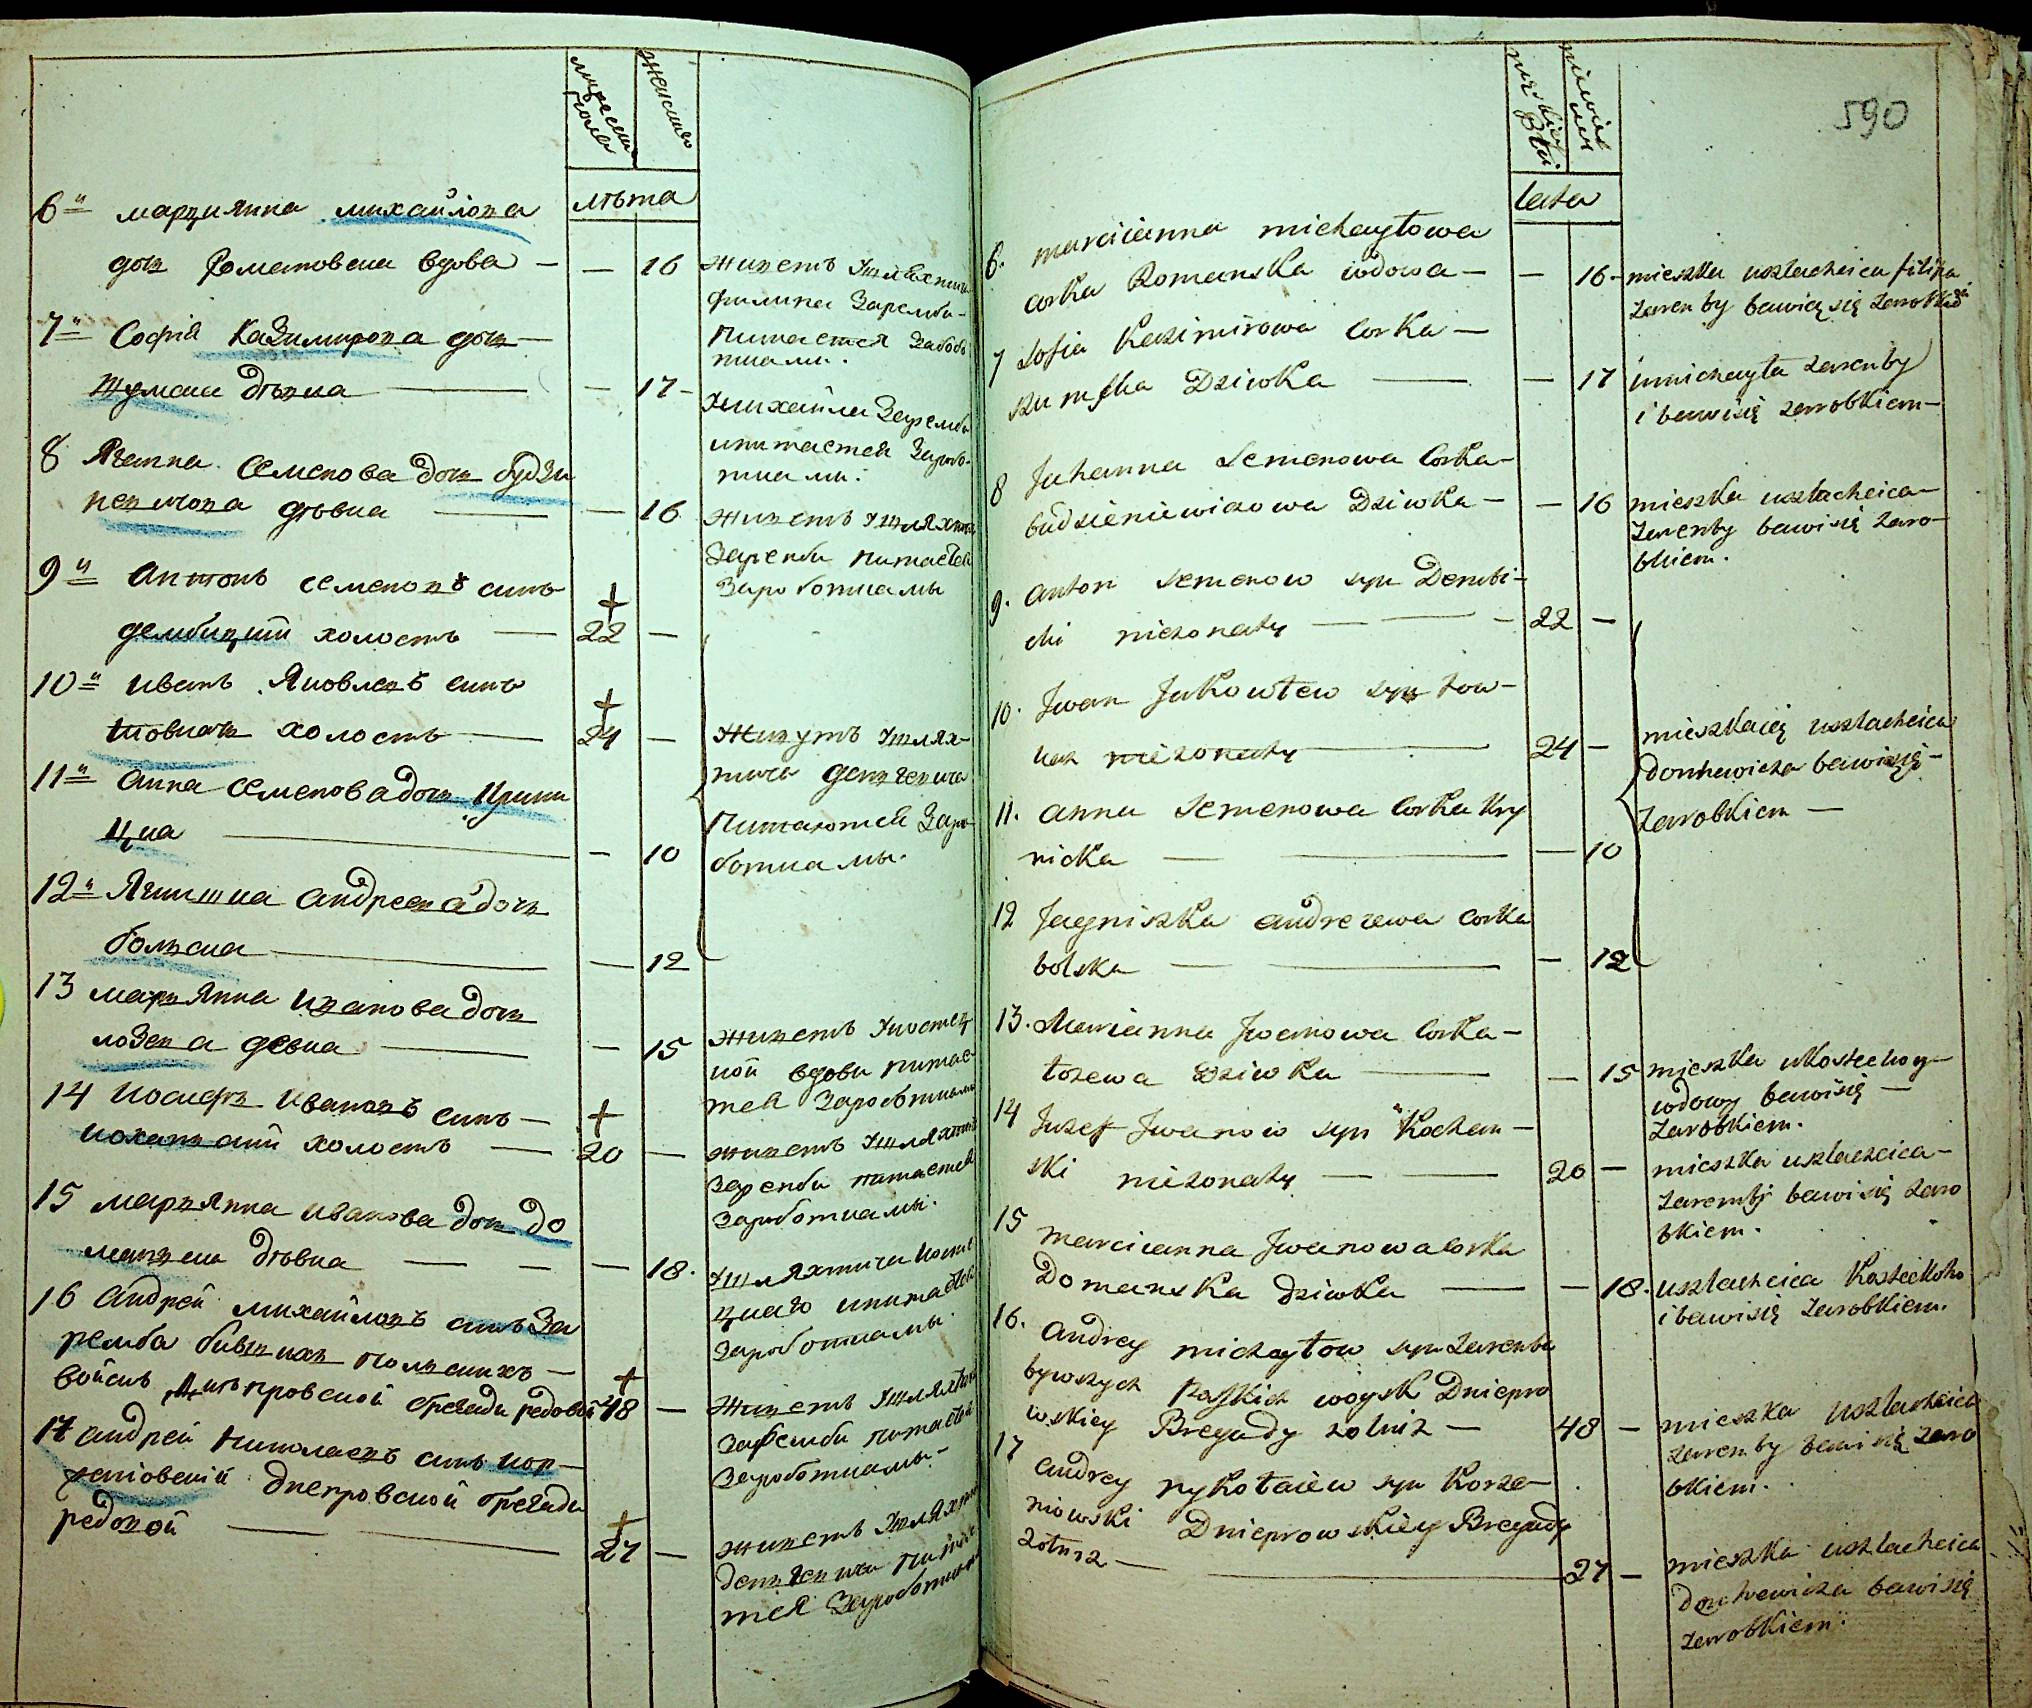 мужеска пола
женска
лѣта
6й марцианна михайлова
доч Романовска вдова — — 16
живетъ Ушляхтича
филипа Заремби
питается Заробо
тками.
7й Софія Казимирова доч —
Шумска дѣвка — — 17 —
Умихайла Заремби
ипитается Зарабо
тками.
8 Яганна Семенова доч будзи
невичова дѣвка — — 16
живетъ Ушляхтича
Заремби питается
Заработками
9й Антонъ семеновъ синъ
дембицкій холостъ — + 22 —
10й иванъ Яковлевъ синъ
Товкачъ холостъ — + 24 —
Живутъ Ушлях-
тича
Питаются Зара
ботками.
11й Анна Семенова доч Крини
цка — — 10
12й Ягнишка Андреева доч
больска — — 12
13 маріянна Иванова доч
лозева девка — — 15
живетъ Укостец
кой вдови питае
тся Заработками
14 Иосифъ Ивановъ синъ — +
коханский холостъ — 20 —
живетъ Ушляхтича
Заремби питается
Заработками.
15 маріянна иванова доч до
манска дѣвка — — — 18.
Ушляхтича Косте
цкаго ипитается
Заработками
16 Андрей михайловъ синъ За
ремба бившихъ польскихъ —
войскъ Днѣпровской брегади редовой + 48 —
Живетъ Ушляхтича
Заремби питается
Заработками. —
17 Андрей Николаевъ синъ кор—
жановскій днепровской брегади
редовой — — + 27 —
живетъ Ушляхтича
питае
тся Заработками
590
męskiey
Płci
lata
6. marcianna michayłowa
corka Romanska wdowa — — 16 —
mieszka uszlacheica filipa
Zaremby bawię się Zarobkiem
7 Zofia Kazimirowa Corka —
szumska Dziwka — — 17
umichayła Zaremby
i bawisię zarobkiem —
8 Juhanna Semenowa Corka —
budzieniewiczowa Dziwka — — 16
mieszka uszlacheica —
Zaremby bawisię Zaro—
bkiem.
9. anton semenow syn Dembi—
cki niezonaty — — — 22 —
10. Jwan Jakowlew syn tow—
kacz niezonaty — 24 —
mieszkaią uszlacheica
bawisię —
Zarobkiem —
11. anna Semenowa Corka Kry
nicka — — — 10
12 Jagniszka andrezewa Corka
bolska — — — 12
13. Marianna Jwanowa Corka —
łozewa Dziwka — — 15
mieszka ukosteckoy —
wdowy bawisię —
Zarobkiem.
14 Juzef Jwanow syn Kochan —
ski niezonaty — — 20 —
mieszka uszlacheica —
Zaremby bawisię Zaro
bkiem.
15 marcianna Jwanowa Corka
Domanska dziwka — — 18.
uszlacheica Kosteckoho
i bawisię Zarobkiem.
16. Andrey michayłow syn Zaremba
bywszych Polskich woysk Dniepro
wskiey Bregady zolniz — 48 —
mieszka uszlacheica
Zaremby bawisię Zaro
bkiem.
17 Andrey nykołaiew syn Korze—
niowski Dnieprowskiey Bregady
Zołniz — — 27 —
mieszka uszlacheica
bawisię
Zarobkiem.